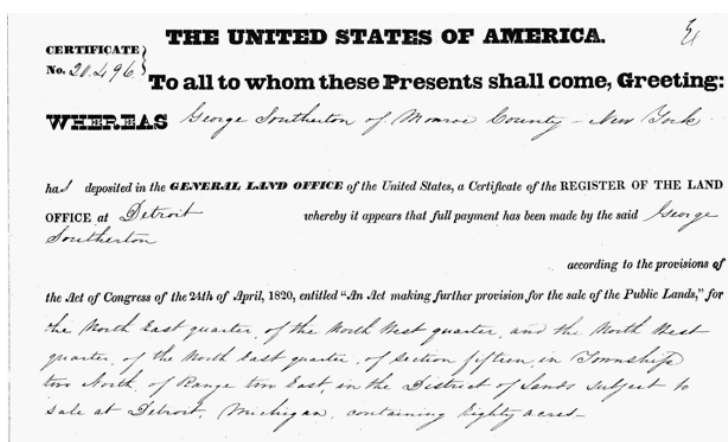 THE UNITED STATES OF AMERICA.
CERTIFICATE
No. 20.496
To all to whom these Presents shall come, Greeting:
WHEREAS George Southerton of Monroe County - New York
has deposited in the GENERAL LAND OFFICE of the United States, a Certificate of the REGISTER OF THE LAND
OFFICE at Detroit whereby it appears that full payment has been made by the said George
Southerton
according to the provisions of
the Act of Congress of the 24th of April, 1820, entitled “An Act making further provision for the sale of the Public Lands,” for
the North East quarter, of the North West quarter, and the North West
quarter, of the North East quarter, of Section fifteen, in Township
two North, of Range two East, in the District of Lands subject to
sale at Detroit, Michigan, containing Eighty acres-